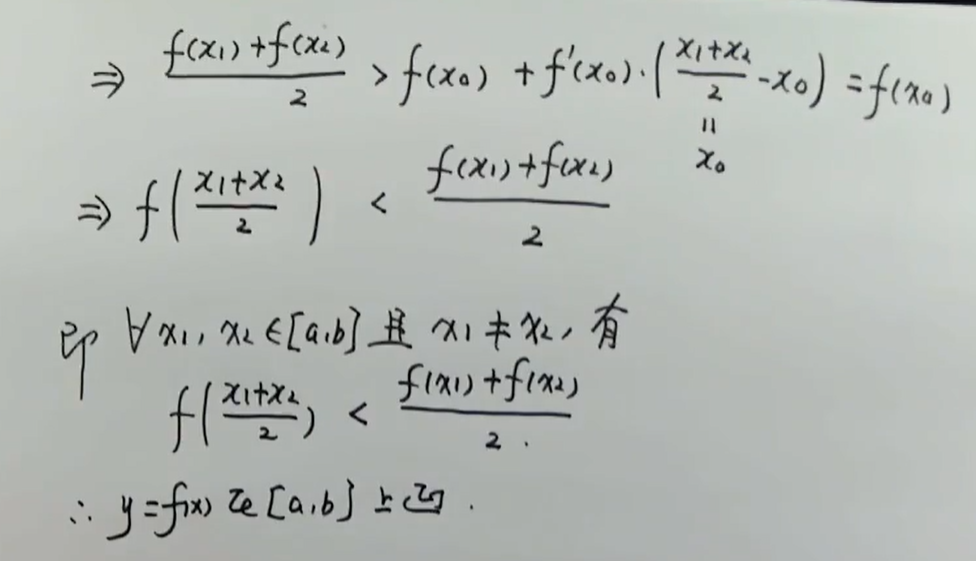 ⇒ \frac{f(x₁)+f(x₂)}{2} > f(x₀) + f'(x₀)·(\frac{x₁+x₂}{2} - x₀) = f(x₀)
॥
x₀
⇒ f(\frac{x₁+x₂}{2}) < \frac{f(x₁)+f(x₂)}{2}
即 ∀x₁, x₂∈[a,b] 且 x₁≠x₂, 有
f(\frac{x₁+x₂}{2}) < \frac{f(x₁)+f(x₂)}{2}.
∴ y=f(x) 在[a,b]上凹.